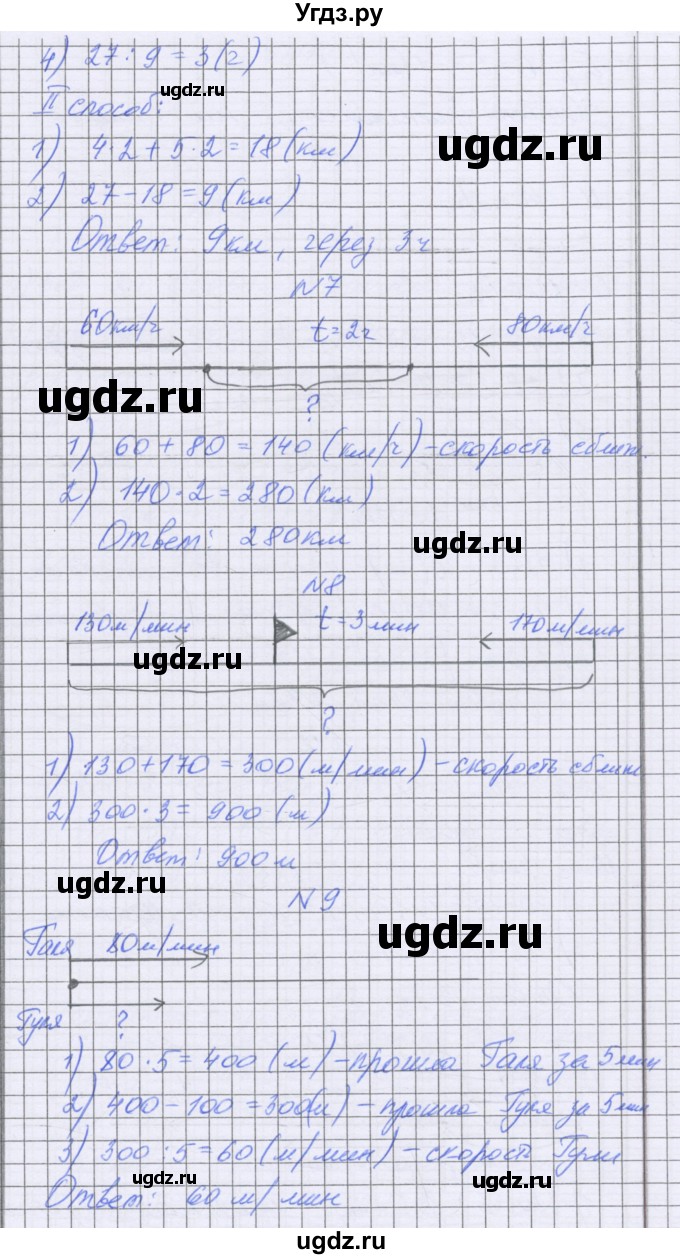 Угдз.ру
4) 27 : 9 = 3 (г)
ugdz.ru
II способ:
1) 4·2 + 5·2 = 18 (км)
ugdz.ru
2) 27 – 18 = 9 (км)
Ответ: 9 км, через 3 ч
N7
60км/ч t = 2ч 80км/ч
ugdz.ru
?
1) 60 + 80 = 140 (км/ч) – скорость сближ.
2) 140·2 = 280 (км)
Ответ: 280 км
ugdz.ru
N8
130м/мин t – 3 мин 170м/мин
ugdz.ru
?
1) 130 + 170 = 300 (м/мин) – скорость сближ
2) 300·3 = 900 (м)
Ответ: 900 м
ugdz.ru
N9
ugdz.ru
Галя 80м/мин
Гуля ?
1) 80·5 = 400 (м) – прошла Галя за 5 мин
2) 400 – 100 = 300(м) – прошла Гуля за 5 мин
ugdz.ru
3) 300 : 5 = 60 (м/мин) – скорость Гули
ugdz.ru
Ответ: 60 м/мин
ugdz.ru